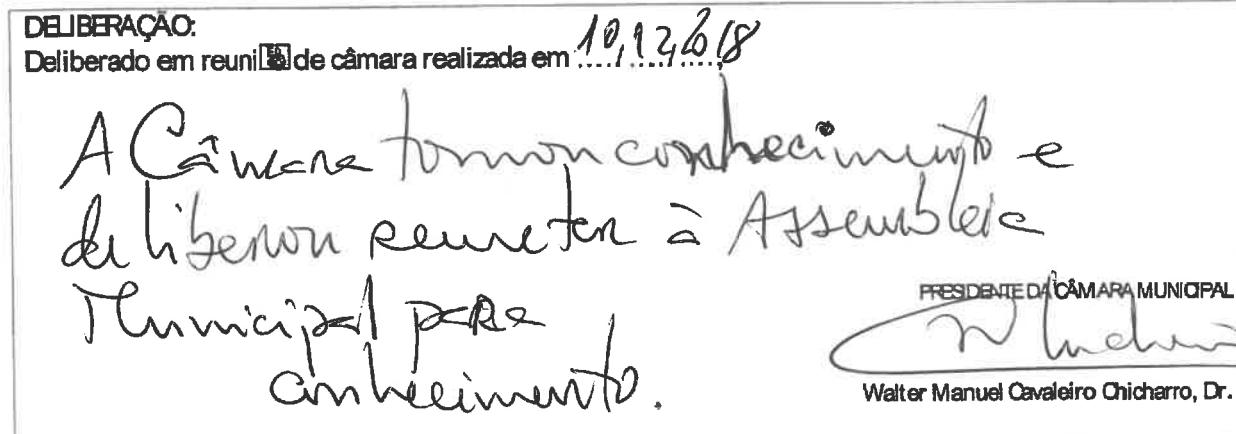 DELIBERAÇÃO:
Deliberado em reuni de câmara realizada em 10,12,2018
A Câmara tomou conhecimento e
deliberou remeter à Assembleia
Municipal para
conhecimento.
PRESIDENTE DA CÂMARA MUNICIPAL
Walter Manuel Cavaleiro Chicharro, Dr.